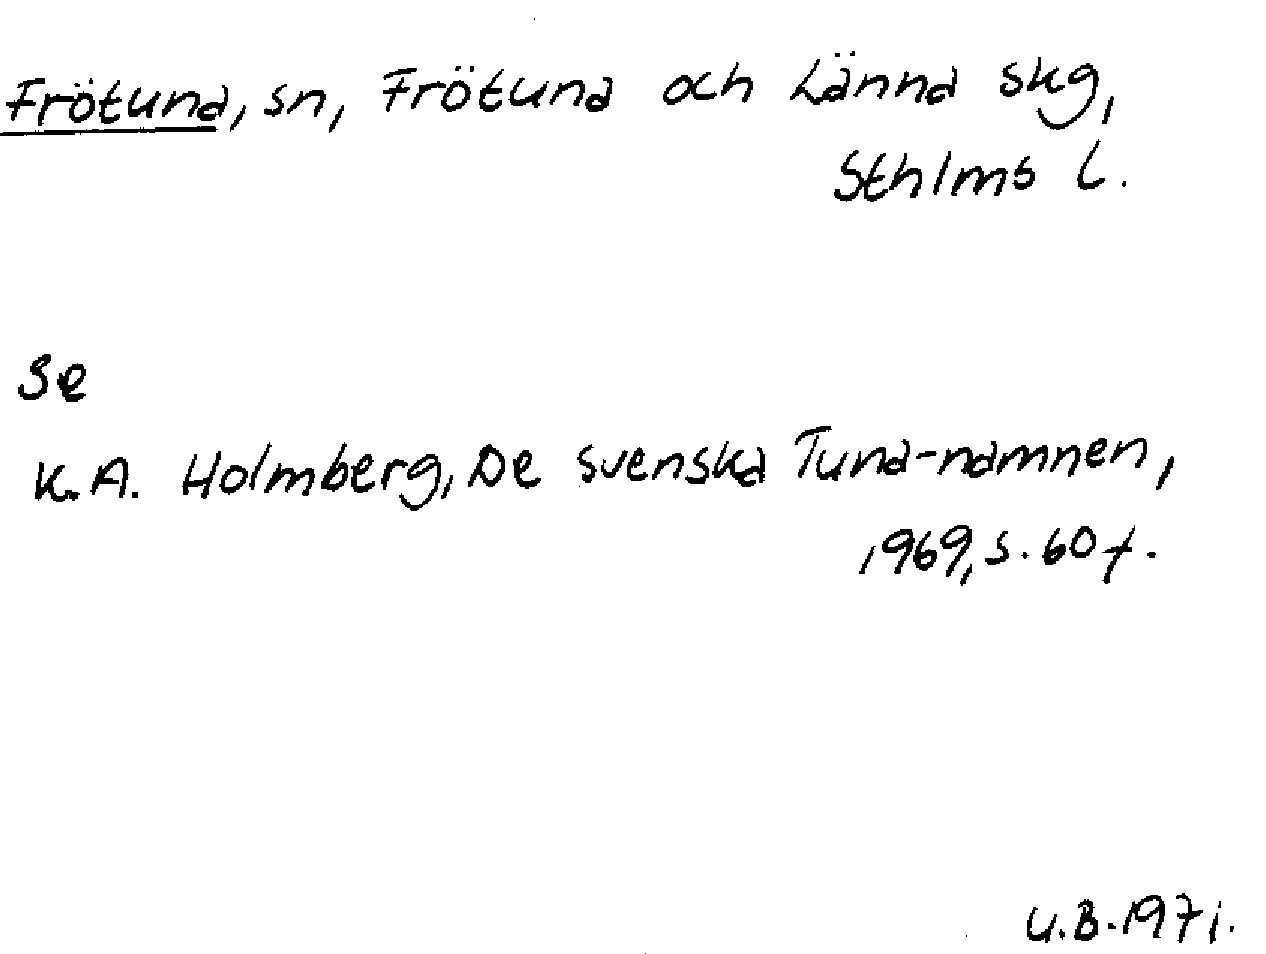 Frötuna, sn, Frötuna och Länna skg,
Sthlms l.
Se
K.A. Holmberg, De svenska Tuna-namnen,
1969, s. 60 f.
U.B. 1971.